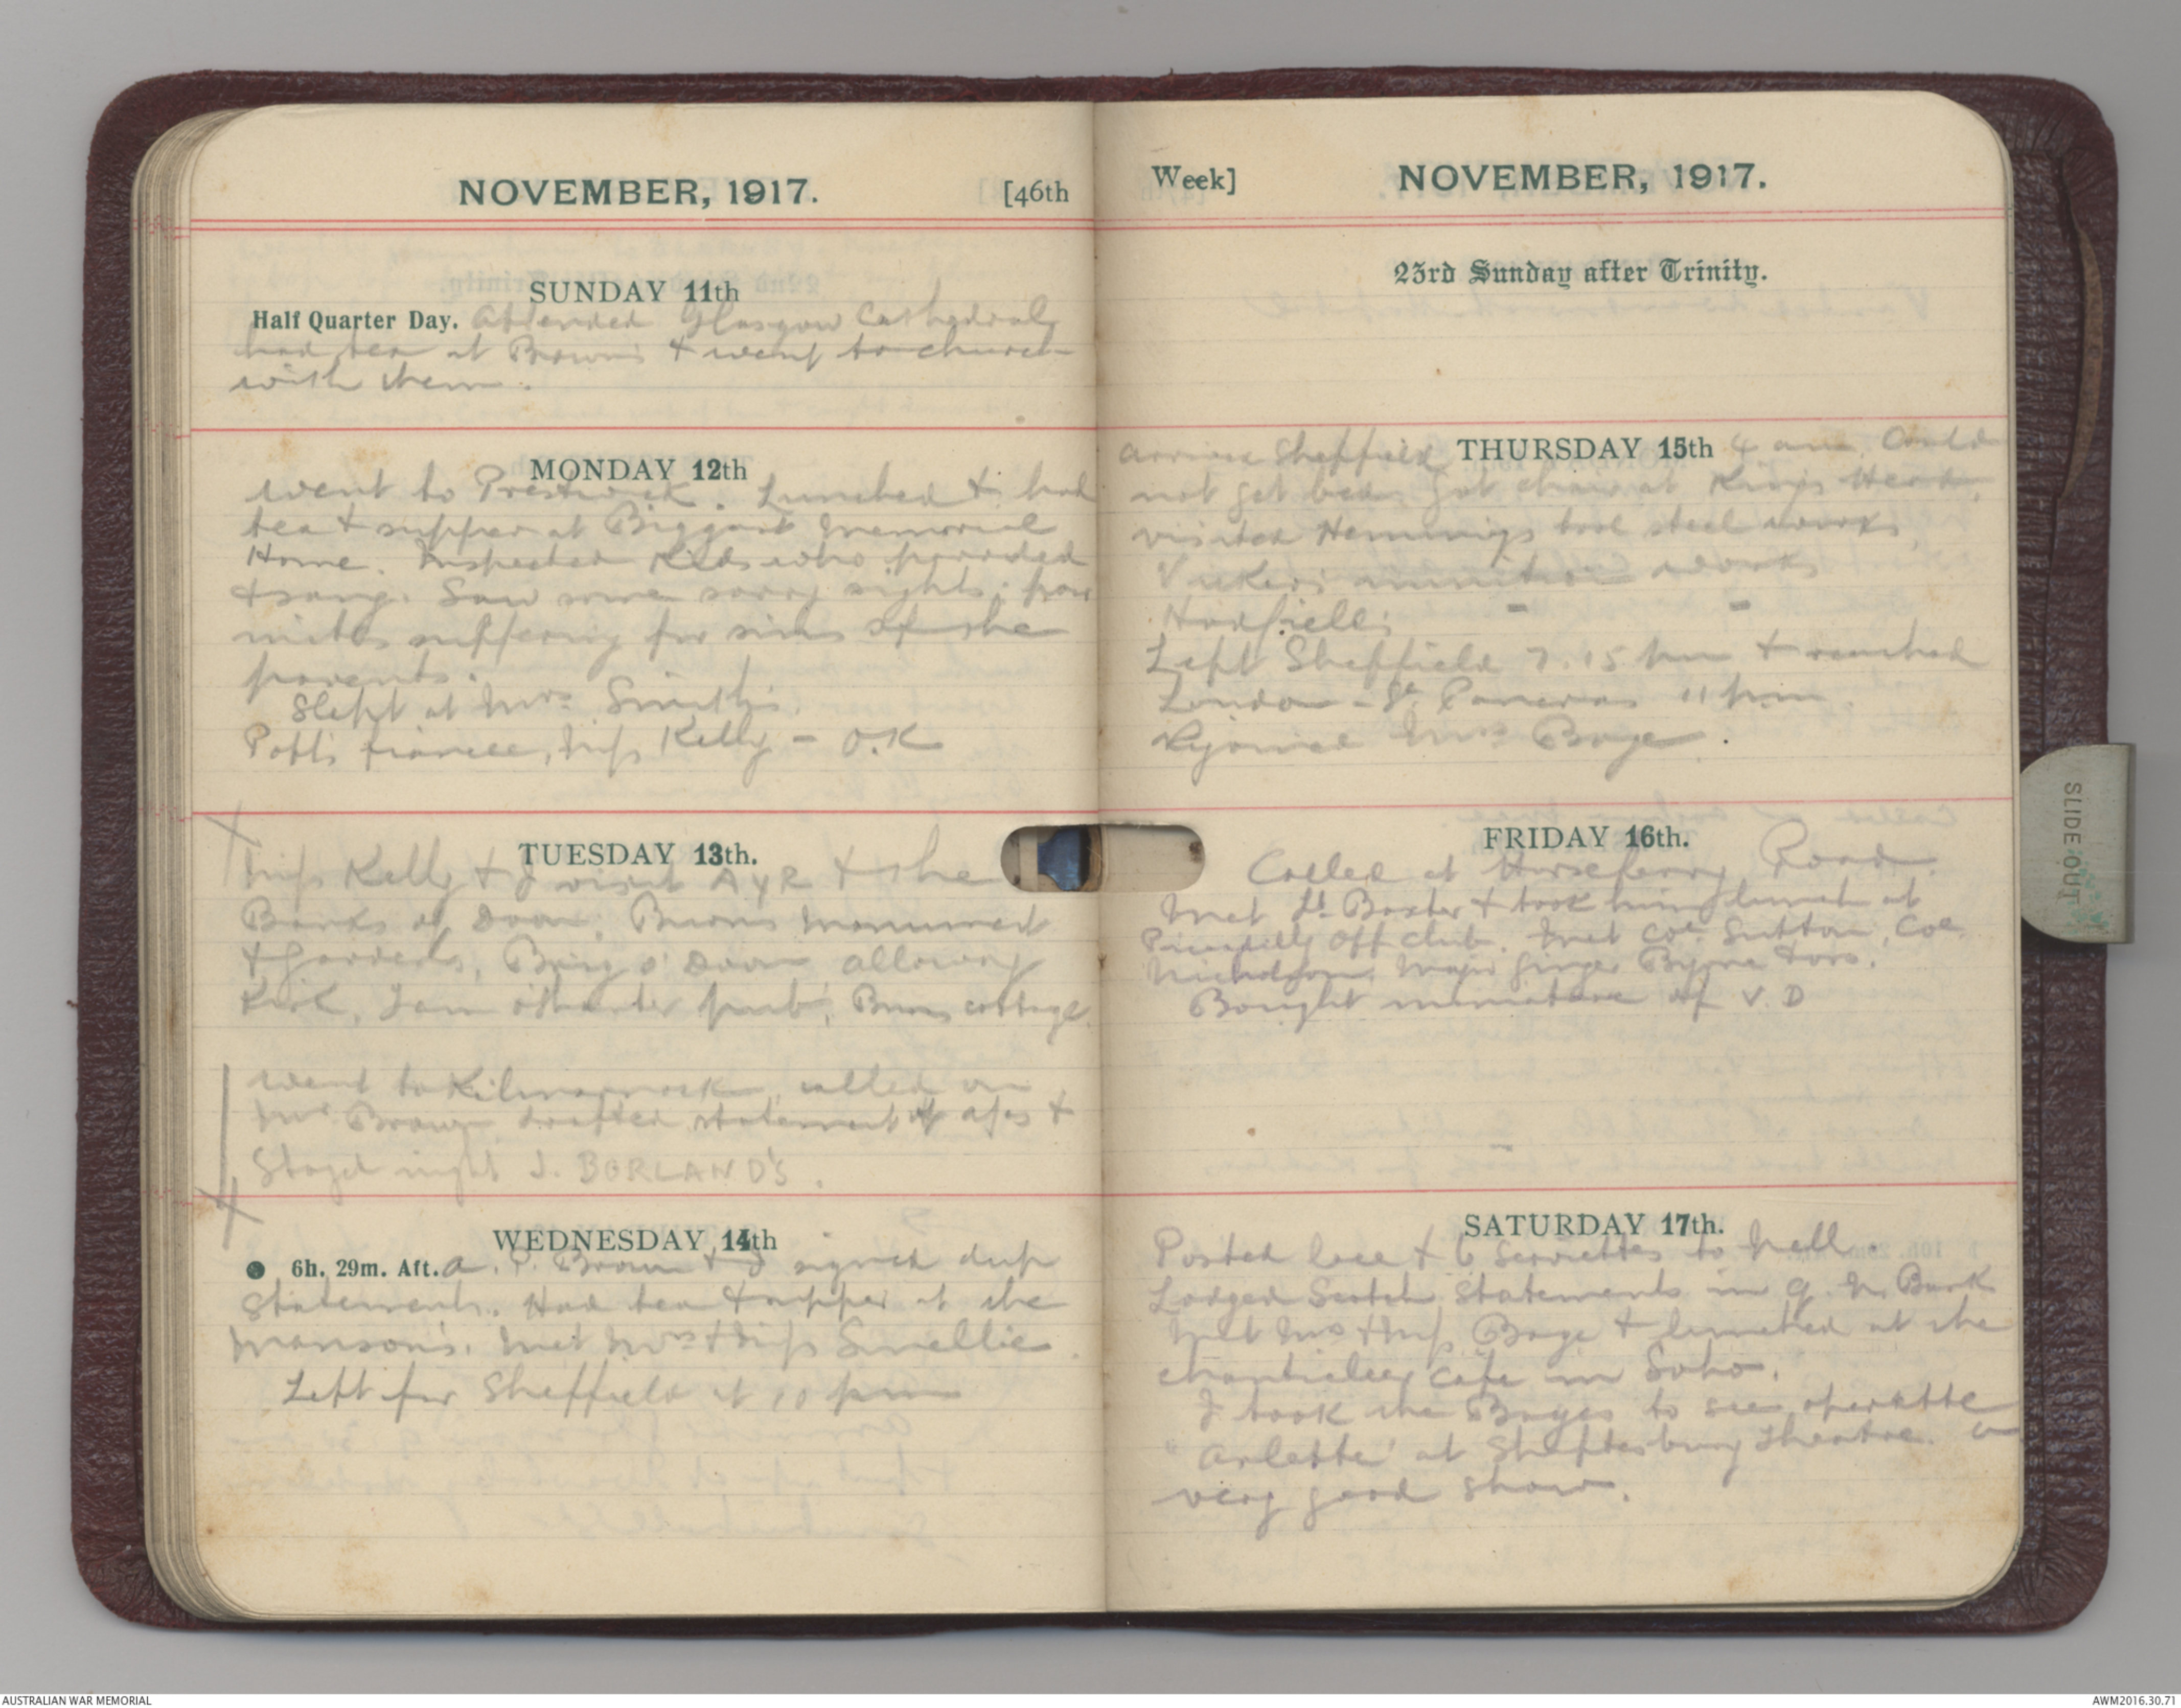 NOVEMBER, 1917. [46th
SUNDAY 11th
Half Quarter Day. Attended Glasgow Cathedral
had tea at Browns & went to church
with them.
MONDAY 12th
Went to Prestwick. Lunched & had
tea & supper at Biggart Memorial
Home. Inspected Kids who paraded
& sang. Saw some sorry sights, poor
mites suffering for sins of the
parents.
Slept at Mrs Smith's.
Potts fiancee, Miss Kelly - O.K
TUESDAY 13th.
Miss Kelly & I visit AYR & the
Banks of Doon, Burns monument
& gardens, Brig o' Doon alloway
Kirk, Tam o'Shanter pub, Burns cottage
Went to Kilmarnock, called on
Mr Brown drafted statement of afs &
Stayed night J. BORLAND'S.
WEDNESDAY 14th
6h. 29m. Aft. A. P. Brown & I signed dup
statements. Had tea & supper at the
Manson's. Met Mrs & Miss Smellie.
Left for Sheffield at 10 pm
Week] NOVEMBER, 1917.
23rd Sunday after Trinity.
THURSDAY 15th
Arrived Sheffield 4 am. Could
not get bed, got chair at Kings Head.
visited Hemmings tool steel works,
Vickers munition works
Hadfields - -
Left Sheffield 7.15 pm & reached
London - St. Pancras 11 pm.
Rejoined Mrs Boye.
FRIDAY 16th.
Called at Horseferry Road.
Met Lt. Baxter & took him lunch at
Piccadilly Off club. Met Col. Sutton, Col.
Nicholson, Major Ginger Byrne &ors.
Bought miniature of V.D
SATURDAY 17th.
Posted lace & 6 serviettes to Nell
Lodged Scotch Statements in Q. N. Bank
Met Mrs & Miss Boye & lunched at the
chanticleer Cafe in Soho.
I took the Boyes to see operette
"Arlette" at Shaftesbury Theatre. a
very good show.
SLIDE OUT
AUSTRALIAN WAR MEMORIAL
AWM2016.30.71